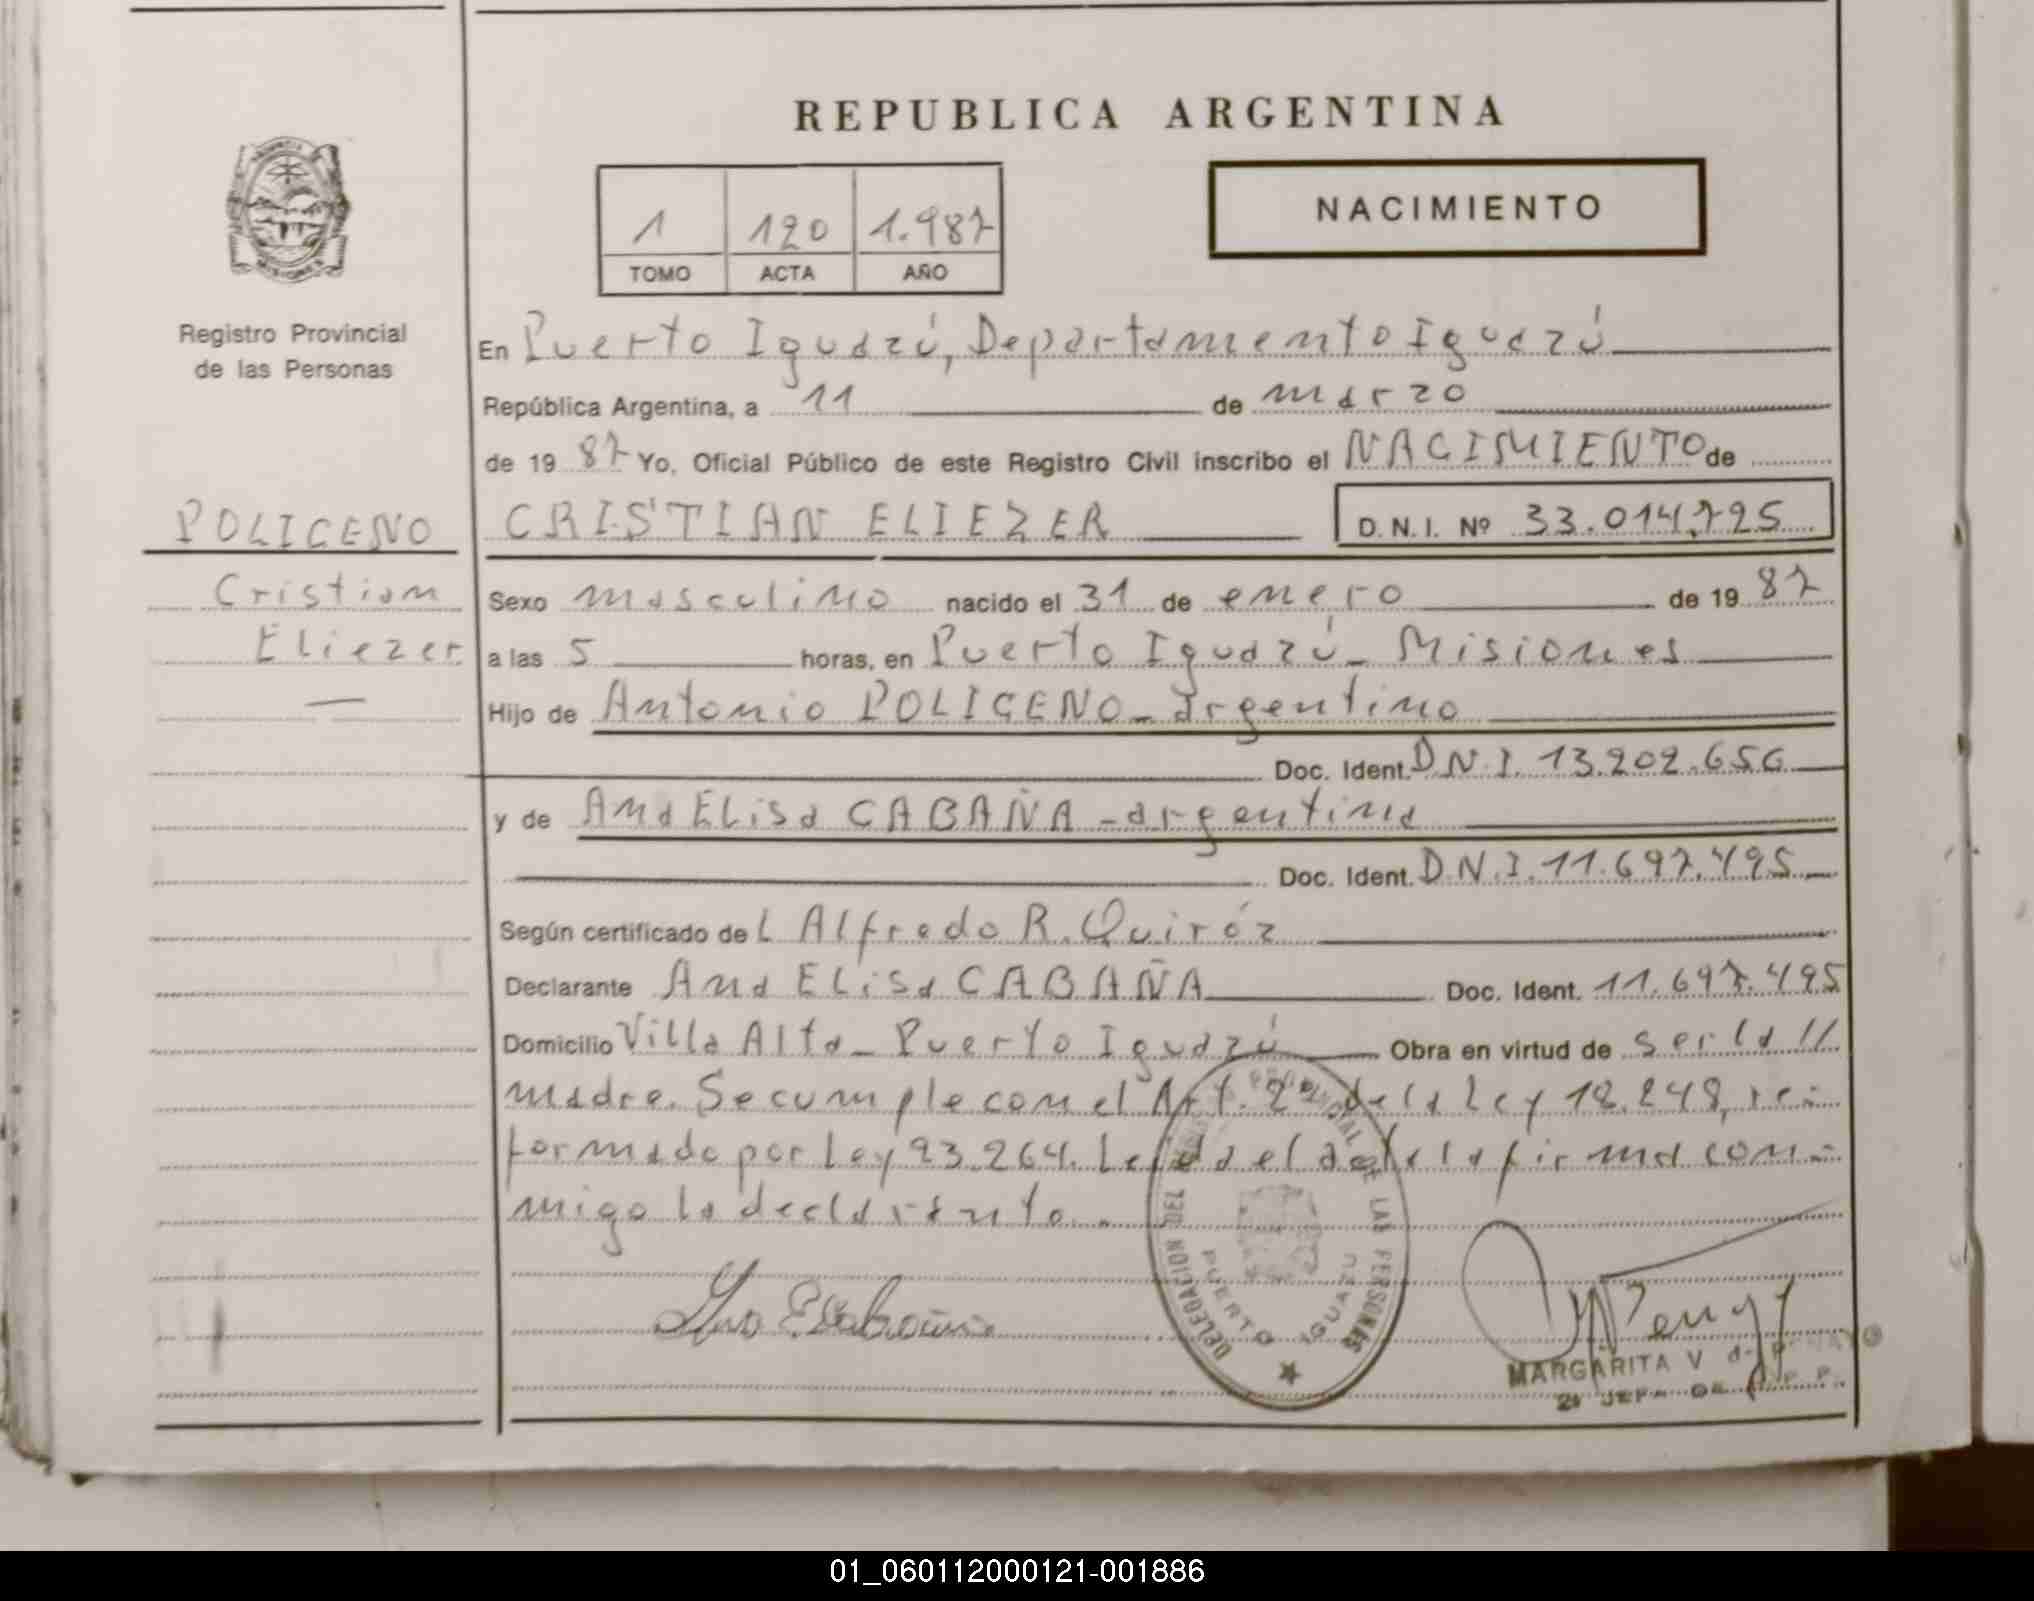 REPUBLICA ARGENTINA
1 120 1.987
TOMO ACTA AÑO
NACIMIENTO
Registro Provincial
de las Personas
En Puerto Iguazú, Departamento Iguazú
República Argentina, a 11 de marzo
de 19 87 Yo, Oficial Público de este Registro Civil inscribo el NACIMIENTO de
POLICENO
CRISTIAN ELIEZER D.N.I. Nº 33.014.725
Cristian
Eliezer
Sexo masculino nacido el 31 de enero de 19 87
a las 5 horas, en Puerto Iguazú - Misiones
Hijo de Antonio POLICENO - argentino
Doc. Ident. D.N.I. 13.202.656
y de Ana Elisa CABAÑA - argentina
Doc. Ident. D.N.I. 11.697.495
Según certificado de L Alfredo R. Quiróz
Declarante Ana Elisa CABAÑA Doc. Ident. 11.697.495
Domicilio Villa Alta - Puerto Iguazú Obra en virtud de ser la //
madre. Se cumple con el Art. 2º de la Ley 18.248, re=
formado por Ley 23.264. Leída el acta la firma con=
migo la declarante.
DELEGACION DEL REGISTRO PROVINCIAL DE LAS PERSONAS
PUERTO IGUAZU
MARGARITA V de PENAYO
01_060112000121-001886